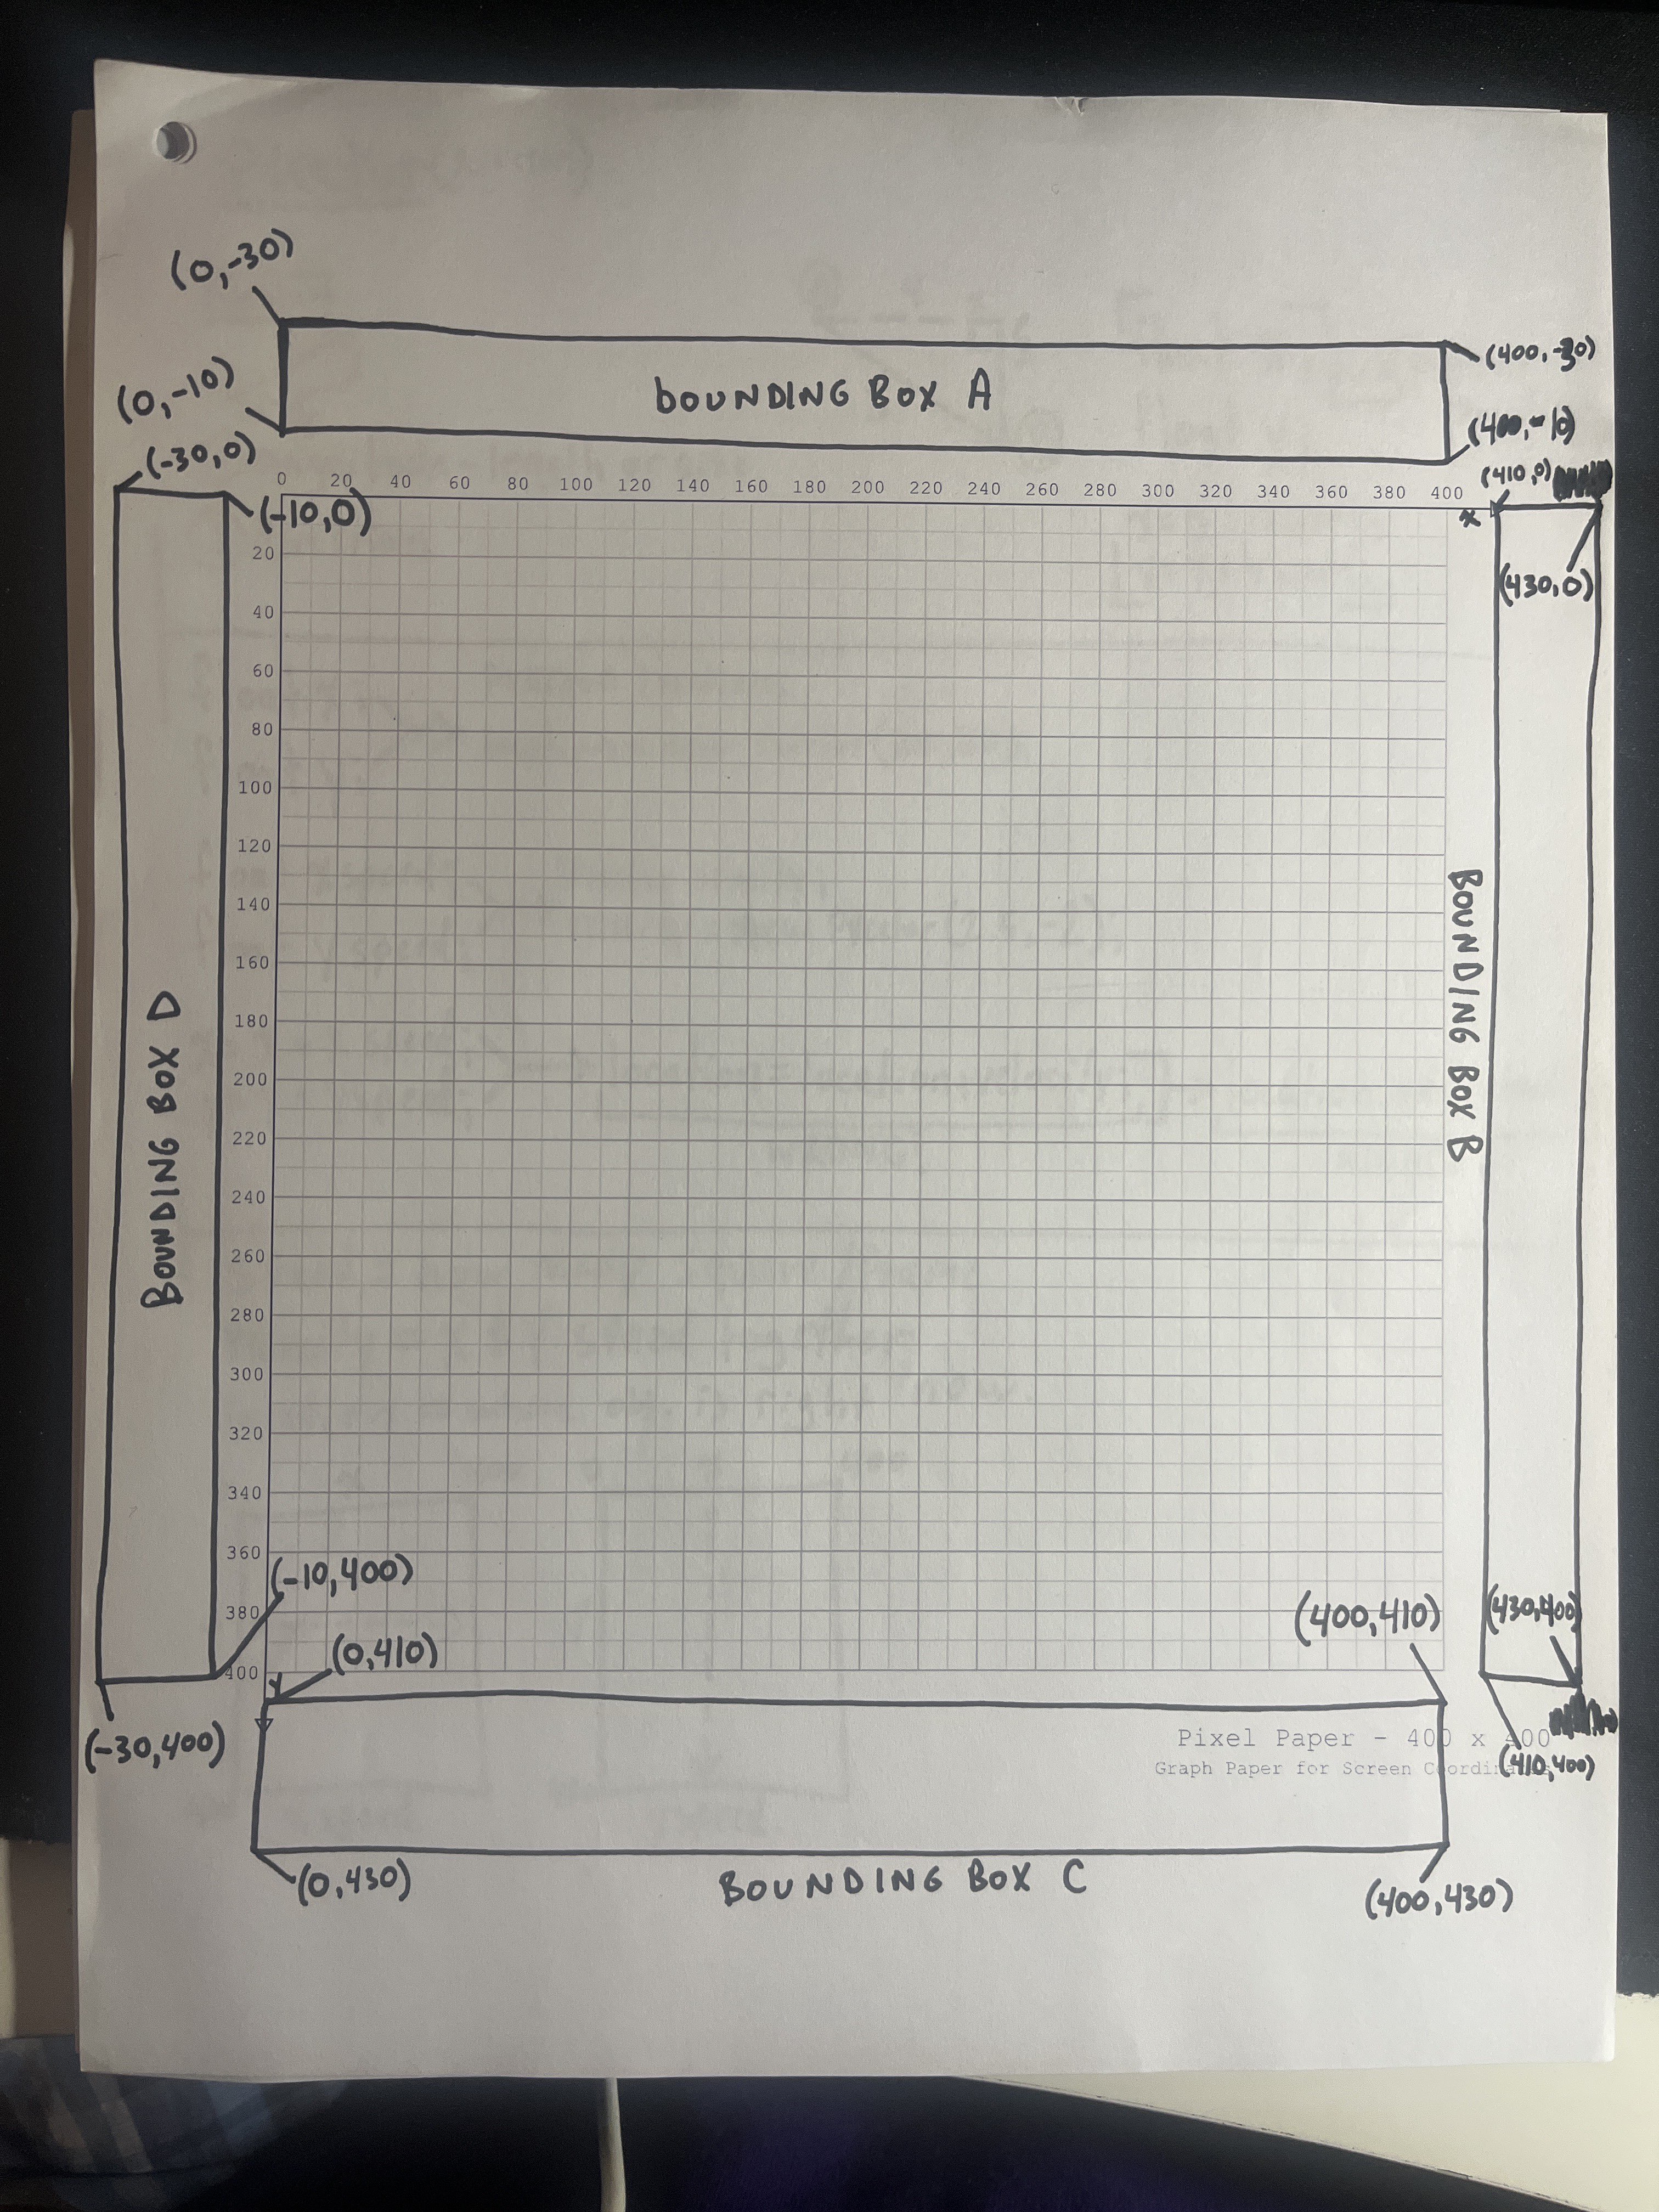 (0,-30)
(400,-30)
bOUNDING BOX A
(0,-10)
(400,-10)
(-30,0)
(410,0)
0 20 40 60 80 100 120 140 160 180 200 220 240 260 280 300 320 340 360 380 400
(-10,0)
x
20
(430,0)
40
60
80
100
120
140
160
180
200
220
240
260
280
300
320
340
360
380
400
BOUNDING BOX B
BOUNDING BOX D
(-10,400)
(400,410)
(430,400)
(0,410)
Y
(-30,400)
Pixel Paper - 400 x 400
Graph Paper for Screen Coordinates
(410,400)
(0,430)
BOUNDING BOX C
(400,430)